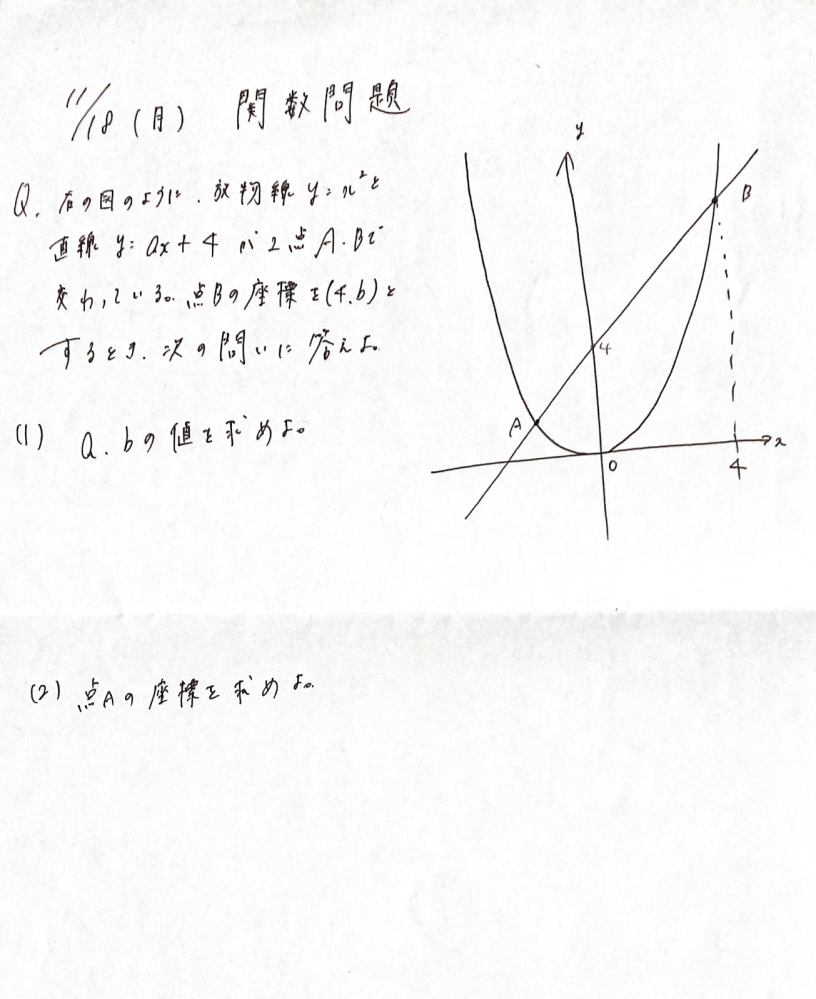 11/18(月) 関数問題
Q. 右の図のように、放物線 y=x²と
直線 y=ax+4 が2点A.Bで
交わっている。点Bの座標を(4.b)と
するとき、次の問いに答えよ。
(1) a.bの値を求めよ。
(2) 点Aの座標を求めよ。
y
B
4
A
x
O
4